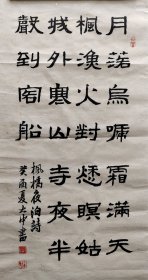 月落烏啼霜滿天
楓漁火對愁瞑姑
城外寒山寺夜半
聲到客船
楓橋夜泊詩
癸酉夏書